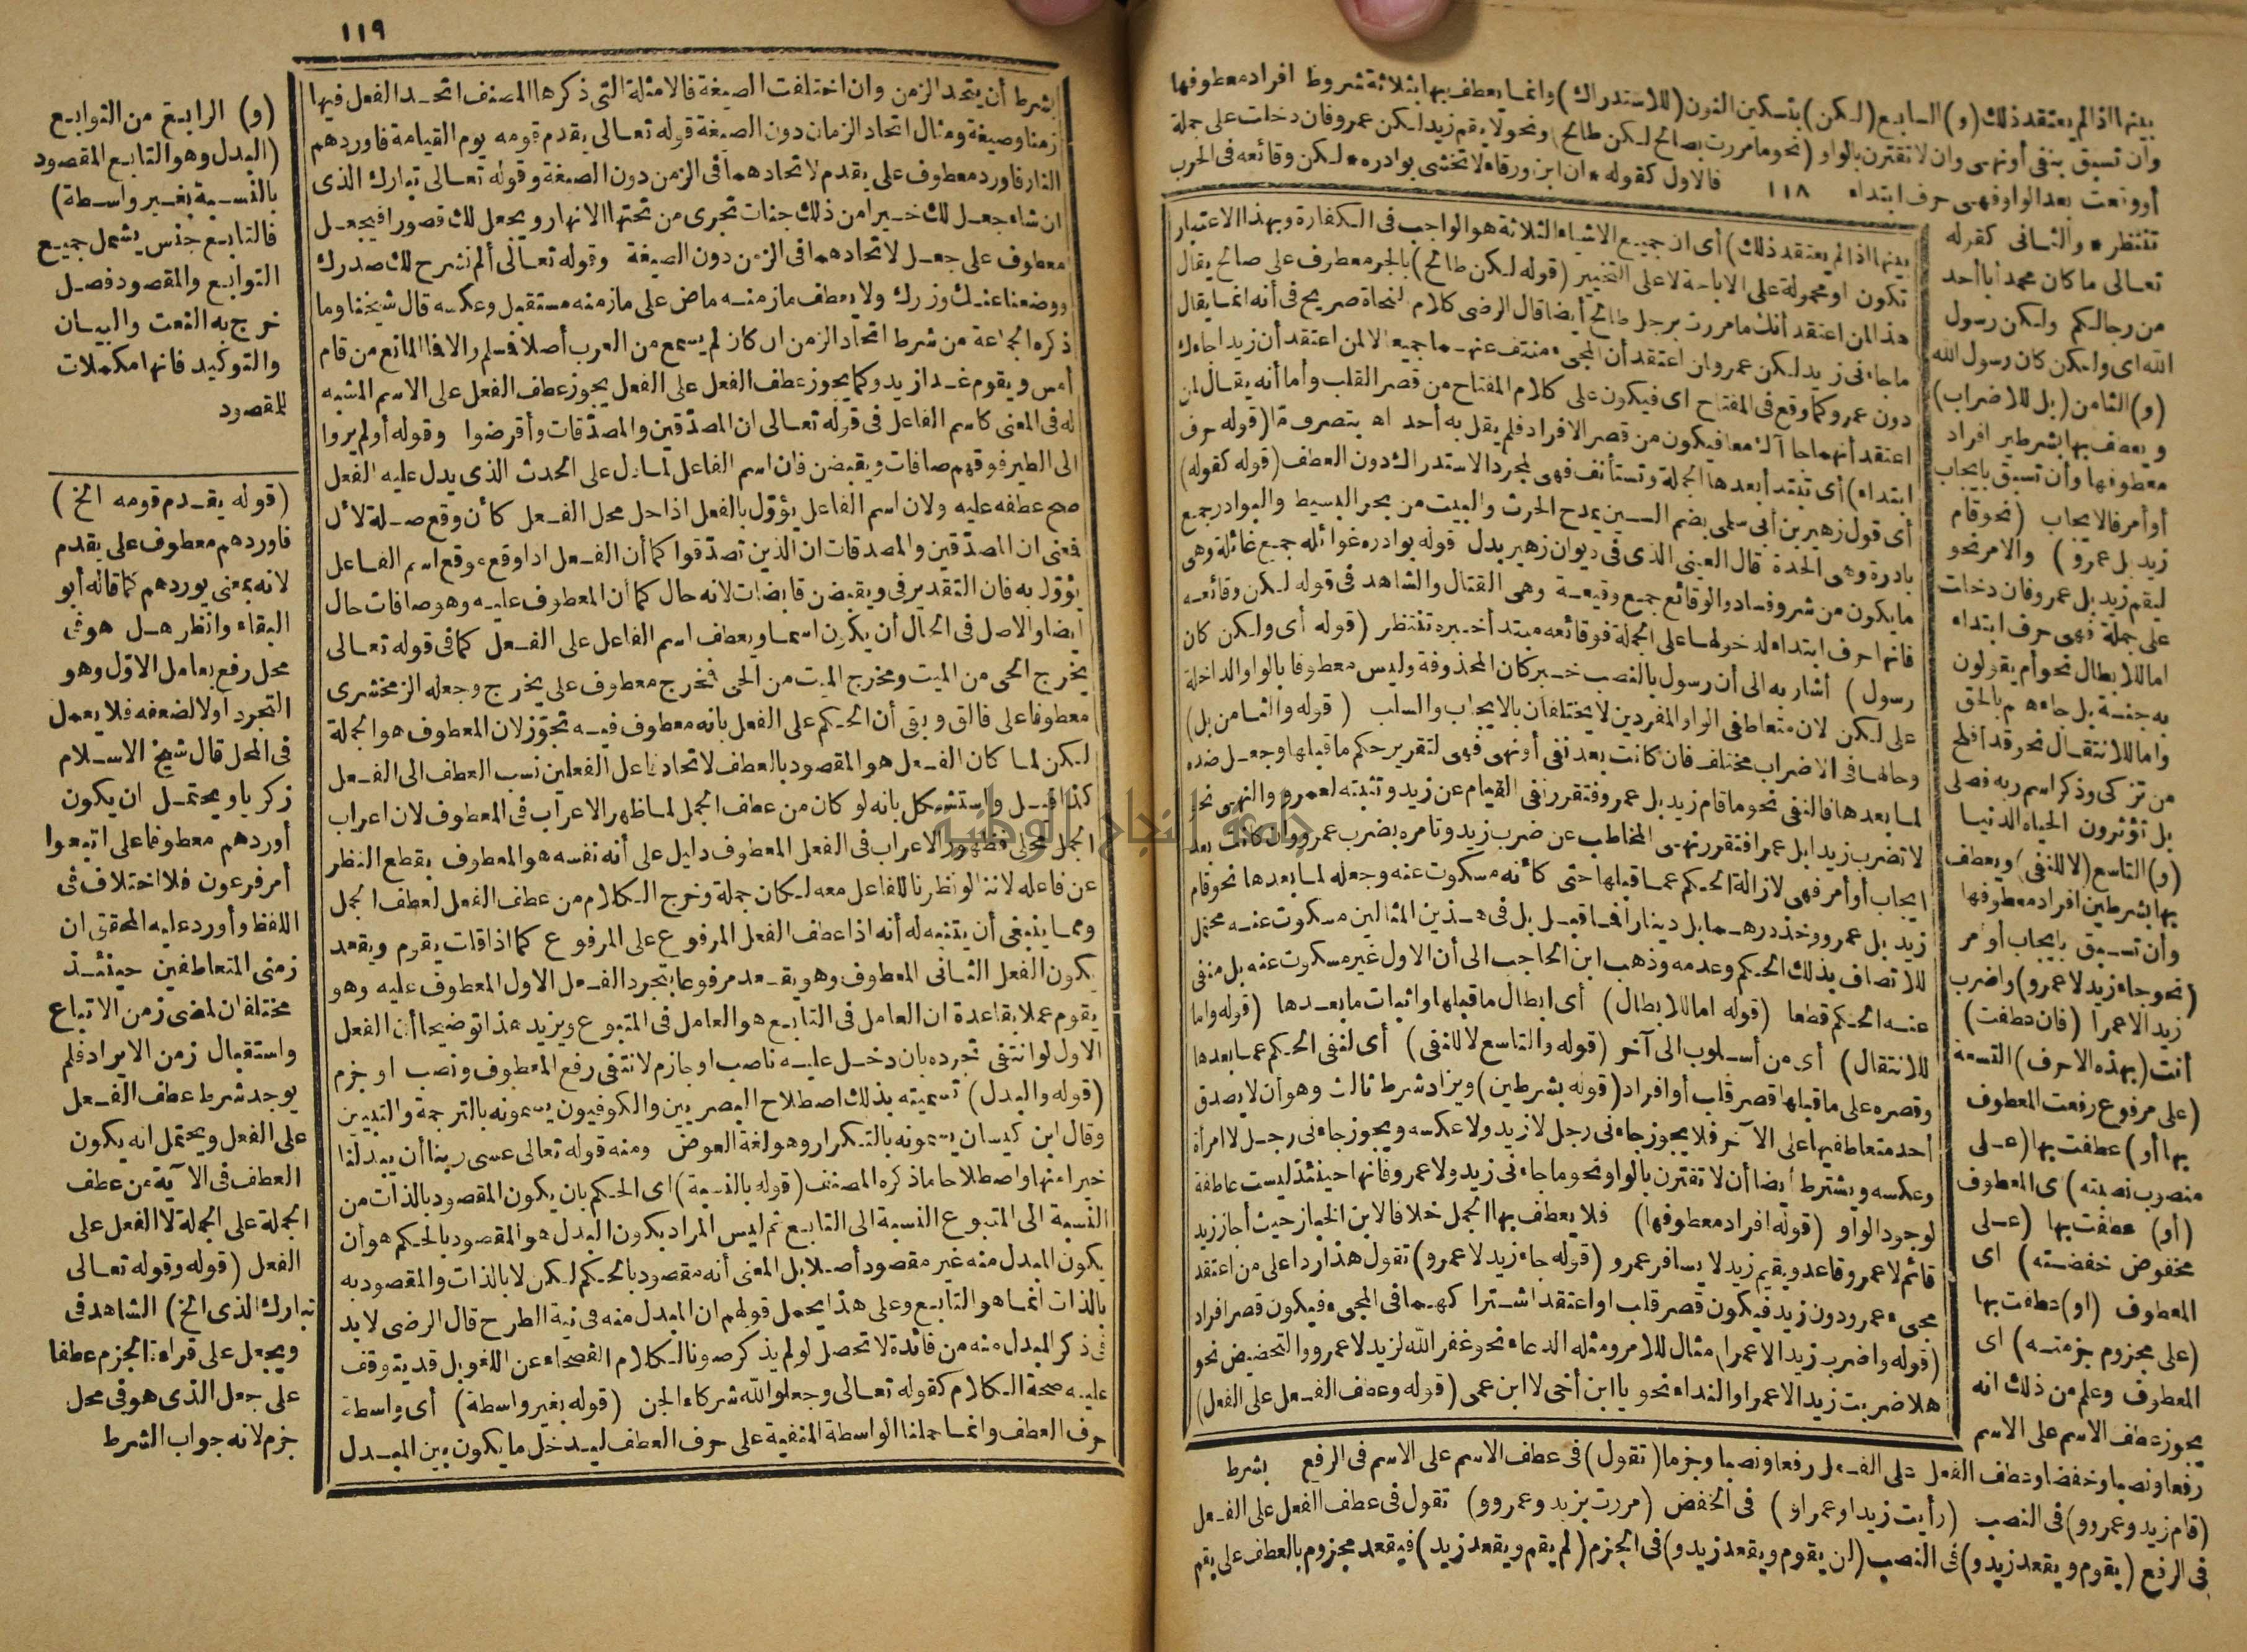 بينها اذا لم يعتقد ذلك (و) السابع (لكن) بتسكين النون (للاستدراك) وانما يعطف بها بثلاثة شروط افراد معطوفها
وان تسبق بنفى أو نهى وان لا تقترن بالواو (نحو ما مررت بصالح لكن طالح) ونحو لا يقم زيد لكن عمرو فان دخلت على جملة
أو وقعت بعد الواو فهى حرف ابتداء ١١٨ فالاول كقوله * ان ابن ورقاء لا تخشى بوادره * لكن وقائعه فى الحرب
تنتظر * والثانى كقوله
تعالى ما كان محمد أبا أحد
من رجالكم ولكن رسول
الله اى ولكن كان رسول الله
(و) الثامن (بل للاضراب)
ويعطف بها بشرطين افراد
معطوفها وأن تسبق بايجاب
أو أمر فالايجاب (نحو قام
زيد بل عمرو) والامر نحو
ليقم زيد بل عمرو فان دخلت
على جملة فهى حرف ابتداء
اما للابطال نحو أم يقولون
به جنة بل جاءهم بالحق
واما للانتقال نحو قد أفلح
من تزكى وذكر اسم ربه فصلى
بل تؤثرون الحياة الدنيا
(و) التاسع (لا للنفى) ويعطف
بها بشرطين افراد معطوفها
وأن تسبق بايجاب أو أمر
(نحو جاء زيد لا عمرو) واضرب
زيدا لا عمرا (فان عطفت)
أنت (بهذه الاحرف) التسعة
(على مرفوع رفعت المعطوف
بها أو) عطفت بها (على
منصوب نصبته) اى المعطوف
(أو) عطفت بها (على
مخفوض خفضته) اى
المعطوف (او) عطفت بها
(على مجزوم جزمته) اى
المعطوف وعلم من ذلك انه
يجوز عطف الاسم على الاسم
رفعا ونصبا وخفضا وعطف الفعل على الفعل رفعا ونصبا وجزما (تقول) فى عطف الاسم على الاسم فى الرفع بشرط
(قام زيد وعمرو و) فى النصب (رأيت زيدا وعمرا و) فى الخفض (مررت بزيد وعمرو و) تقول فى عطف الفعل على الفعل
فى الرفع (يقوم ويقعد زيد و) فى النصب (لن يقوم ويقعد زيد و) فى الجزم (لم يقم ويقعد زيد) فيقعد مجزوم بالعطف على يقم
بينها اذا لم يعتقد ذلك) أى ان جميع الاشياء الثلاثة هو الواجب فى الكفارة وبهذا الاعتبار
تكون او محمولة على الاباحة لا على التخيير (قوله لكن طالح) بالجر معطوف على صالح يقال
هذا لمن اعتقد أنك ما مررت برجل طالح أيضا قال الرضى كلام النحاة صريح فى أنه انما يقال
ما جاءنى زيد لكن عمرو لمن اعتقد أن المجىء منتف عنهما جميعا لا لمن اعتقد أن زيدا جاءك
دون عمرو كما وقع فى المفتاح اى فيكون على كلام المفتاح من قصر القلب وأما أنه يقال لمن
اعتقد أنهما جاآك معا فيكون من قصر الافراد فلم يقل به أحد اه بتصرف ما (قوله حرف
ابتداء) أى تبتدأ بعدها الجملة وتستأنف فهى لمجرد الاستدراك دون العطف (قوله كقوله)
أى قول زهير بن أبى سلمى بضم السين يمدح الحرث والبيت من بحر البسيط والبوادر جمع
بادرة وهى الحدة قال العينى الذى فى ديوان زهير بدل قوله بوادره غوائله جمع غائلة وهى
ما يكون من شر وفساد والوقائع جمع وقيعة وهى القتال والشاهد فى قوله لكن وقائعه
فانها حرف ابتداء لدخولها على الجملة فوقائعه مبتدأ خبره تنتظر (قوله أى ولكن كان
رسول) أشار به الى أن رسول بالنصب خبر كان المحذوفة وليس معطوفا بالواو الداخلة
على لكن لان متعاطفى الواو المفردين لا يختلفان بالايجاب والسلب (قوله والثامن بل)
وحالها فى الاضراب مختلف فان كانت بعد نفى أو نهى فهى لتقرير حكم ما قبلها وجعل ضده
لما بعدها فالنفى نحو ما قام زيد بل عمرو فتقرر نفى القيام عن زيد وتثبته لعمرو والنهى نحو
لا تضرب زيدا بل عمرا فتقرر نهى المخاطب عن ضرب زيد وتامره بضرب عمرو وان كانت بعد
ايجاب أو أمر فهى لازالة الحكم عما قبلها حتى كأنه مسكوت عنه وجعله لما بعدها نحو قام
زيد بل عمرو وخذ درهما بل دينارا فما قبل بل فى هذين المثالين مسكوت عنه محتمل
للاتصاف بذلك الحكم وعدمه وذهب ابن الحاجب الى أن الاول غير مسكوت عنه بل منفى
عنه الحكم قطعا (قوله اما للابطال) أى ابطال ما قبلها واثبات ما بعدها (قوله واما
للانتقال) أى من أسلوب الى آخر (قوله والتاسع لا للنفى) أى لنفى الحكم عما بعدها
وقصره على ما قبلها قصر قلب أو افراد (قوله بشرطين) ويزاد شرط ثالث وهو أن لا يصدق
أحد متعاطفيها على الآخر فلا يجوز جاءنى رجل لا زيد ولا عكسه ويجوز جاءنى رجل لا امرأة
وعكسه ويشترط أيضا أن لا تقترن بالواو نحو ما جاءنى زيد ولا عمرو فانها حينئذ ليست عاطفة
لوجود الواو (قوله افراد معطوفها) فلا يعطف بها الجمل خلافا لابن الخباز حيث أجاز زيد
قائم لا عمرو قاعد ويقيم زيد لا يسافر عمرو (قوله جاء زيد لا عمرو) تقول هذا ردا على من اعتقد
مجىء عمرو دون زيد فيكون قصر قلب او اعتقد اشتراكهما فى المجىء فيكون قصر افراد
(قوله واضرب زيدا لا عمرا) مثال للامر ومثله الدعاء نحو غفر الله لزيد لا عمرو والتحضيض نحو
هلا ضربت زيدا لا عمرا والنداء نحو يا ابن أخى لا ابن عمى (قوله وعطف الفعل على الفعل)
١١٩
بشرط أن يتحد الزمن وان اختلفت الصيغة فالامثلة التى ذكرها المصنف اتحد الفعل فيها
زمنا وصيغة ومثال اتحاد الزمان دون الصيغة قوله تعالى يقدم قومه يوم القيامة فاوردهم
النار فاورد معطوف على يقدم لاتحادهما فى الزمن دون الصيغة وقوله تعالى تبارك الذى
ان شاء جعل لك خيرا من ذلك جنات تجرى من تحتها الانهار ويجعل لك قصورا فيجعل
معطوف على جعل لاتحادهما فى الزمن دون الصيغة وقوله تعالى ألم نشرح لك صدرك
ووضعنا عنك وزرك ولا يعطف ما زمنه ماض على ما زمنه مستقبل وعكسه قال شيخنا وما
ذكره الجماعة من شرط اتحاد الزمن ان كان لم يسمع من العرب أصلا فسلم والا فا المانع من قام
أمس ويقوم غدا زيد وكما يجوز عطف الفعل على الفعل يجوز عطف الفعل على الاسم المشبه
له فى المعنى كاسم الفاعل فى قوله تعالى ان المصدقين والمصدقات وأقرضوا وقوله أولم يروا
الى الطير فوقهم صافات ويقبضن فان اسم الفاعل لما دل على الحدث الذى يدل عليه الفعل
صح عطفه عليه ولان اسم الفاعل يؤول بالفعل اذا حل محل الفعل كأن وقع صلة لأل
فمعنى ان المصدقين والمصدقات ان الذين تصدقوا كما أن الفعل اذا وقع موقع اسم الفاعل
يؤول به فان التقدير فى ويقبضن قابضات لانه حال كما أن المعطوف عليه وهو صافات حال
أيضا والاصل فى الحال أن يكون اسما ويعطف اسم الفاعل على الفعل كما فى قوله تعالى
يخرج الحى من الميت ومخرج الميت من الحى فمخرج معطوف على يخرج وجعله الزمخشرى
معطوفا على فالق وبقى أن الحكم على الفعل بانه معطوف فيه تجوز لان المعطوف هو الجملة
لكن لما كان الفعل هو المقصود بالعطف لاتحاد فاعل الفعلين نسب العطف الى الفعل
كذا قيل واستشكل بانه لو كان من عطف الجمل لما ظهر الاعراب فى المعطوف لان اعراب
الجمل محلى فظهور الاعراب فى الفعل المعطوف دليل على أنه نفسه هو المعطوف بقطع النظر
عن فاعله لاننا لو نظرنا للفاعل معه لكان جملة وخرج الكلام من عطف الفعل لعطف الجمل
ومما ينبغى أن يتنبه له أنه اذا عطف الفعل المرفوع على المرفوع كما اذا قلت يقوم ويقعد
يكون الفعل الثانى المعطوف وهو يقعد مرفوعا بتجرد الفعل الاول المعطوف عليه وهو
يقوم عملا بقاعدة ان العامل فى التابع هو العامل فى المتبوع ويزيد هذا توضيحا أن الفعل
الاول لو انتفى تجرده بان دخل عليه ناصب او جازم لانتفى رفع المعطوف ونصب او جزم
(قوله والبدل) تسميته بذلك اصطلاح البصريين والكوفيون يسمونه بالترجمة والتبيين
وقال ابن كيسان يسمونه بالتكرار وهو لغة العوض ومنه قوله تعالى عسى ربنا أن يبدلنا
خيرا منها واصطلاحا ما ذكره المصنف (قوله بالنسبة) اى الحكم بان يكون المقصود بالذات من
النسبة الى المتبوع النسبة الى التابع ثم ليس المراد بكون البدل هو المقصود بالحكم هو أن
يكون المبدل منه غير مقصود أصلا بل المعنى أنه مقصود بالحكم لكن لا بالذات والمقصود به
بالذات انما هو التابع وعلى هذا يحمل قولهم ان المبدل منه فى نية الطرح قال الرضى لا بد
فى ذكر المبدل منه من فائدة لا تحصل لو لم يذكر صونا لكلام الفصحاء عن اللغو بل قد يتوقف
عليه صحة الكلام كقوله تعالى وجعلوا لله شركاء الجن (قوله بغير واسطة) أى واسطة
حرف العطف وانما حملنا الواسطة المنفية على حرف العطف ليدخل ما يكون بين المبدل
(و) الرابع من التوابع
(البدل وهو التابع المقصود
بالنسبة بغير واسطة)
فالتابع جنس يشمل جميع
التوابع والمقصود فصل
خرج به النعت والبيان
والتوكيد فانها مكملات
للمقصود
(قوله يقدم قومه الخ)
فاوردهم معطوف على يقدم
لانه بمعنى يوردهم كما قاله أبو
البقاء وانظر هل هو فى
محل رفع بعامل الاول وهو
التجرد اولا لضعفه فلا يعمل
فى المحل قال شيخ الاسلام
زكريا ويحتمل ان يكون
أوردهم معطوفا على اتبعوا
أمر فرعون فلا اختلاف فى
اللفظ وأورد عليه المحقق ان
زمنى المتعاطفين حينئذ
مختلفان لمضى زمن الاتباع
واستقبال زمن الايراد فلم
يوجد شرط عطف الفعل
على الفعل ويحتمل انه يكون
العطف فى الآية من عطف
الجملة على الجملة لا الفعل على
الفعل (قوله وقوله تعالى
تبارك الذى الخ) الشاهد فى
ويجعل على قراءة الجزم عطفا
على جعل الذى هو فى محل
جزم لانه جواب الشرط
جامعة النجاح الوطنية